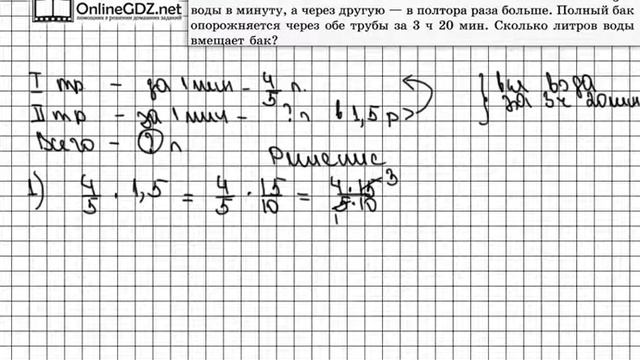 OnlineGDZ.net
помощник в решении домашних заданий
воды в минуту, а через другую — в полтора раза больше. Полный бак
опорожняется через обе трубы за 3 ч 20 мин. Сколько литров воды
вмещает бак?
I тр – за 1 мин – 4/5 л.
II тр – за 1 мин – ? л в 1,5 р >
Всего – ? л
вся вода
за 3ч 20мин
Решение
1) 4/5 · 1,5 = 4/5 · 15/10 = 4·15/5·10 3 1